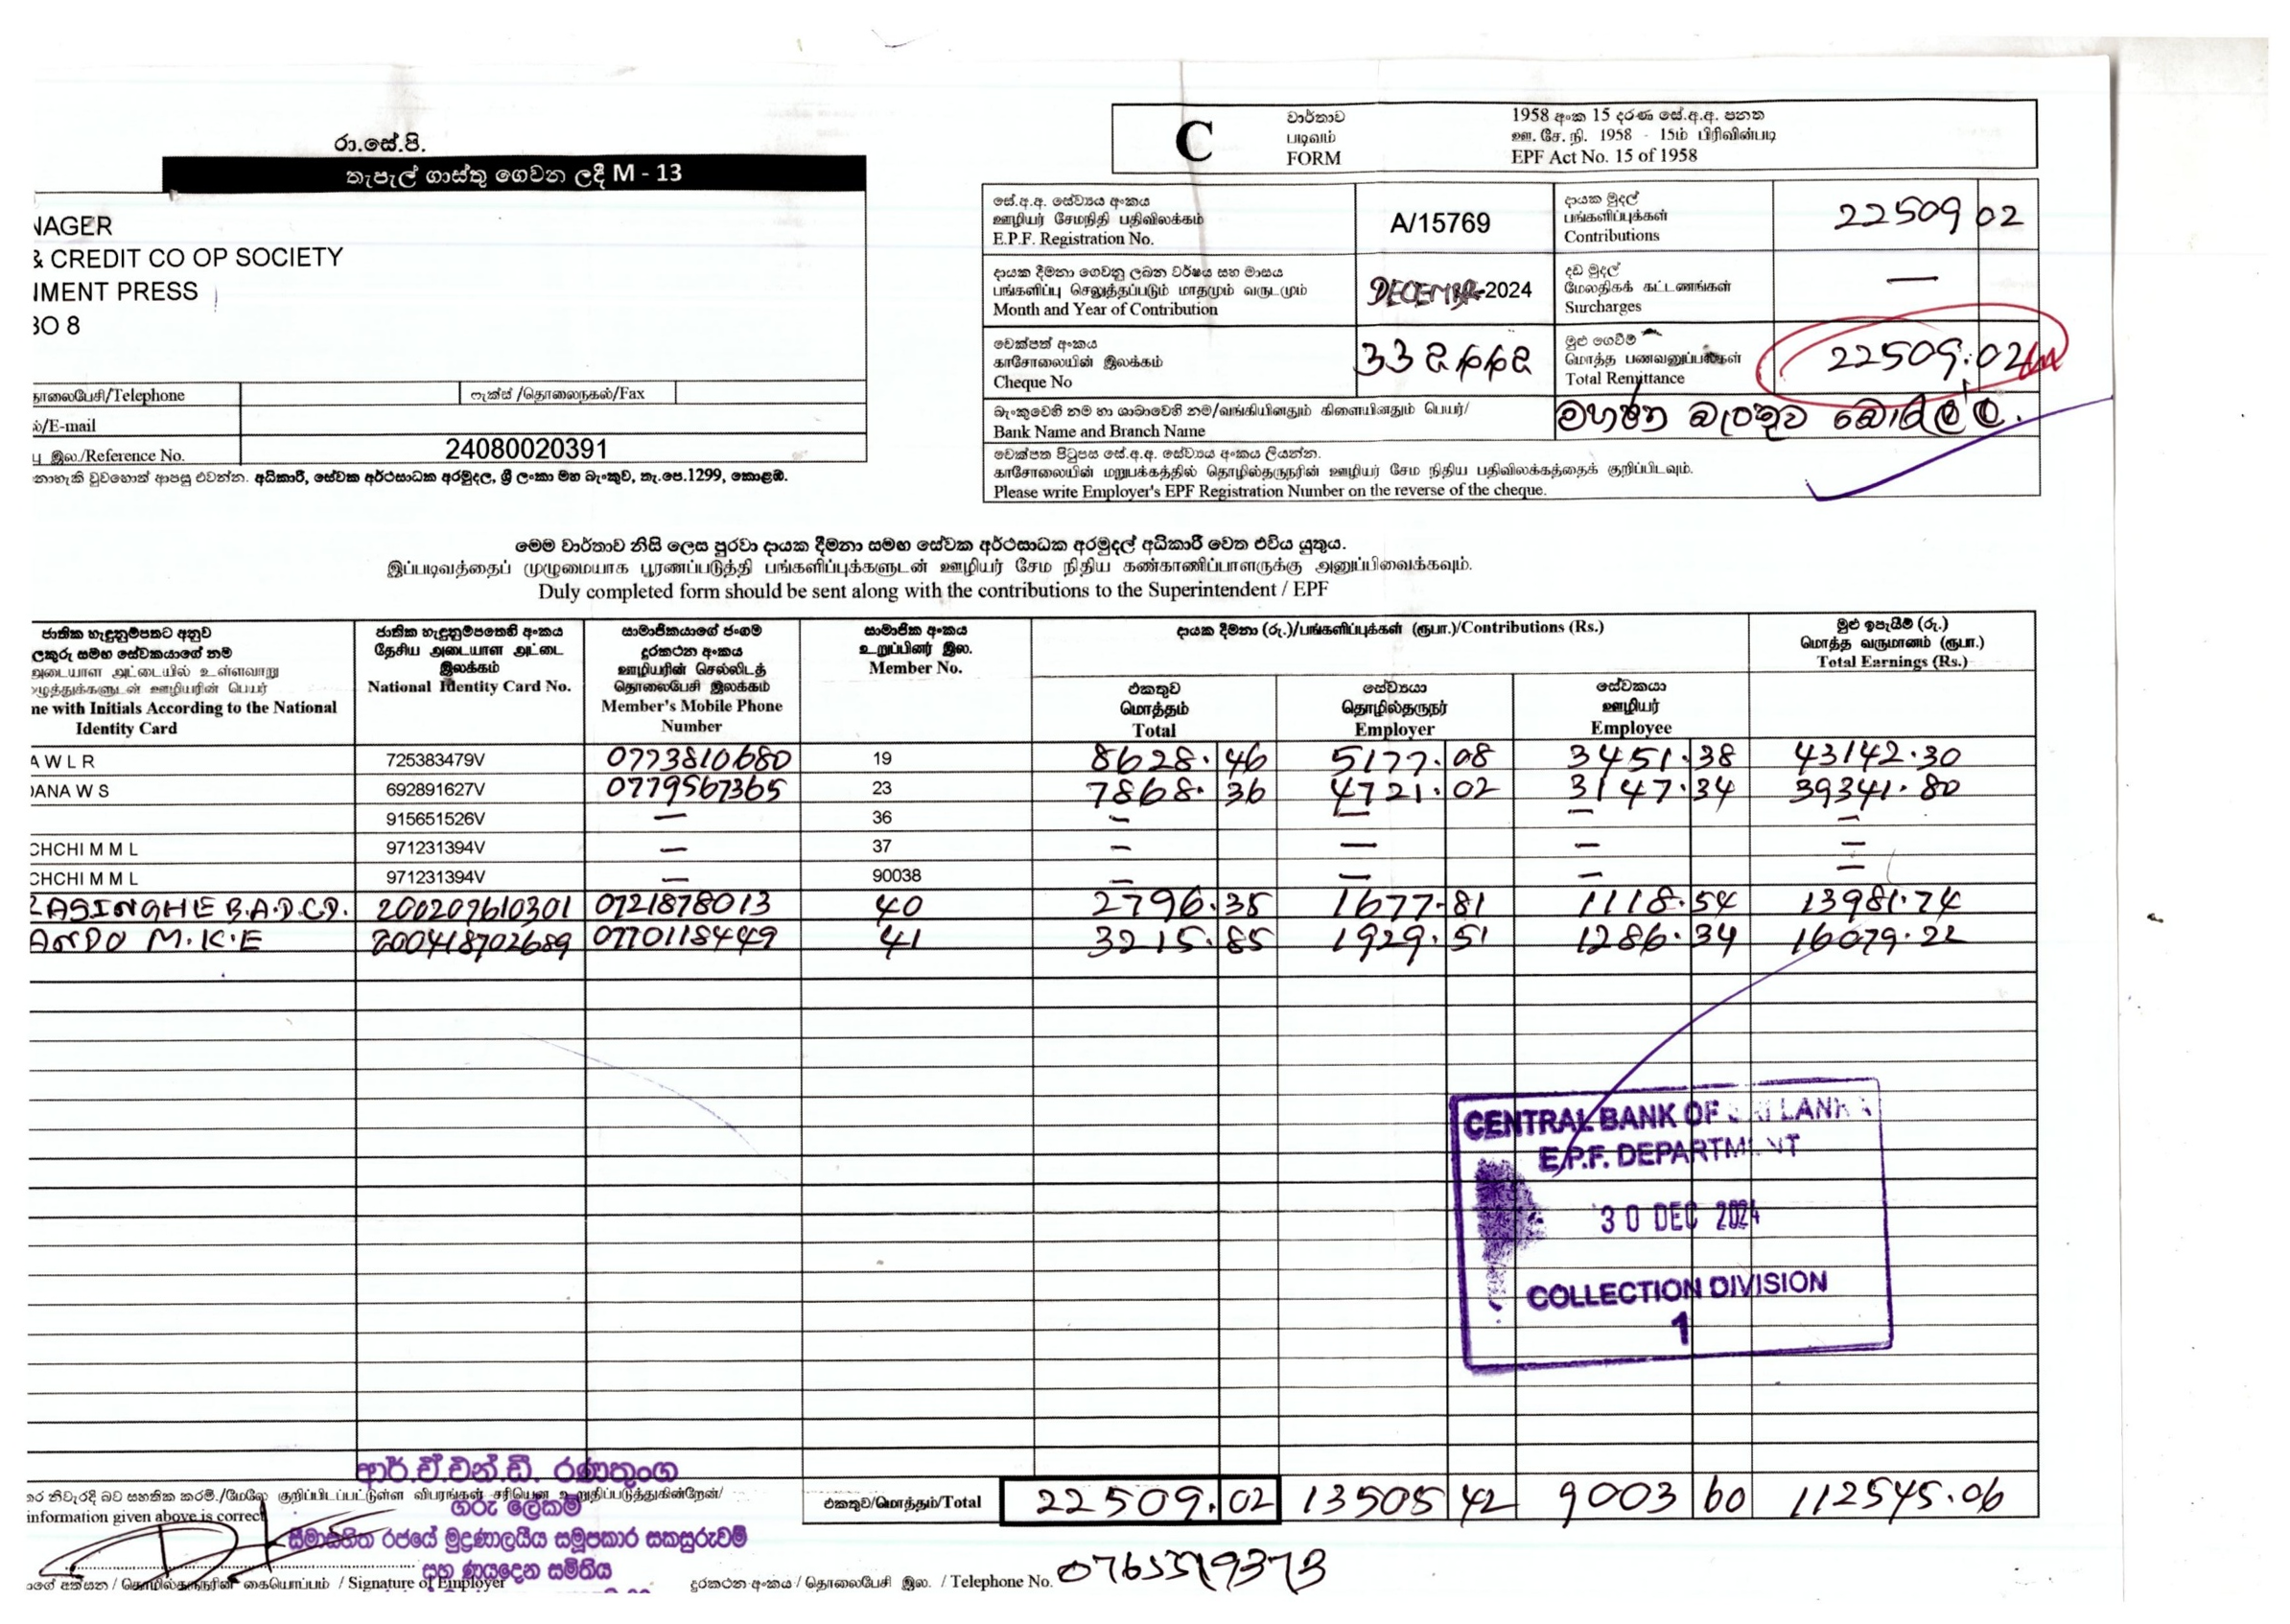 රා.සේ.පි.
තැපැල් ගාස්තු ගෙවන ලදී M - 13
NAGER
& CREDIT CO OP SOCIETY
NMENT PRESS
BO 8
தொலைபேசி/Telephone
ෆැක්ස් /தொலைநகல்/Fax
/E-mail
பு இல./Reference No. 24080020391
නොහැකි වුවහොත් ආපසු එවන්න. අධිකාරී, සේවක අර්ථසාධක අරමුදල, ශ්‍රී ලංකා මහ බැංකුව, තැ.පෙ.1299, කොළඹ.
C
වාර්තාව
படிவம்
FORM
1958 අංක 15 දරණ සේ.අ.අ. පනත
ஊ. சே. நி. 1958 - 15ம் பிரிவின்படி
EPF Act No. 15 of 1958
සේ.අ.අ. සේව්‍යය අංකය
ஊழியர் சேமநிதி பதிவிலக்கம்
E.P.F. Registration No.
A/15769
දායක මුදල්
பங்களிப்புக்கள்
Contributions
22509 02
දායක දීමනා ගෙවනු ලබන වර්ෂය සහ මාසය
பங்களிப்பு செலுத்தப்படும் மாதமும் வருடமும்
Month and Year of Contribution
DECEMBER-2024
දඩ මුදල්
மேலதிகக் கட்டணங்கள்
Surcharges
—
චෙක්පත් අංකය
காசோலையின் இலக்கம்
Cheque No
මුළු ගෙවීම්
மொத்த பணவனுப்பல்கள்
Total Remittance
22509.02
බැංකුවෙහි නම හා ශාඛාවෙහි නම/வங்கியினதும் கிளையினதும் பெயர்/
Bank Name and Branch Name
මහජන බැංකුව බොරැල්ල.
චෙක්පත පිටුපස සේ.අ.අ. සේව්‍යය අංකය ලියන්න.
காசோலையின் மறுபக்கத்தில் தொழில்தருநரின் ஊழியர் சேம நிதிய பதிவிலக்கத்தைக் குறிப்பிடவும்.
Please write Employer's EPF Registration Number on the reverse of the cheque.
මෙම වාර්තාව නිසි ලෙස පුරවා දායක දීමනා සමඟ සේවක අර්ථසාධක අරමුදල් අධිකාරී වෙත එවිය යුතුය.
இப்படிவத்தைப் முழுமையாக பூரணப்படுத்தி பங்களிப்புக்களுடன் ஊழியர் சேம நிதிய கண்காணிப்பாளருக்கு அனுப்பிவைக்கவும்.
Duly completed form should be sent along with the contributions to the Superintendent / EPF
ජාතික හැඳුනුම්පතට අනුව
ලකුරු සමඟ සේවකයාගේ නම
அடையாள அட்டையில் உள்ளவாறு
ழுத்துக்களுடன் ஊழியரின் பெயர்
ne with Initials According to the National
Identity Card
ජාතික හැඳුනුම්පතෙහි අංකය
தேசிய அடையாள அட்டை
இலக்கம்
National Identity Card No.
සාමාජිකයාගේ ජංගම
දුරකථන අංකය
ஊழியரின் செல்லிடத்
தொலைபேசி இலக்கம்
Member's Mobile Phone
Number
සාමාජික අංකය
உறுப்பினர் இல.
Member No.
දායක දීමනා (රු.)/பங்களிப்புக்கள் (ரூபா.)/Contributions (Rs.)
එකතුව
மொத்தம்
Total
සේව්‍යයා
தொழில்தருநர்
Employer
සේවකයා
ஊழியர்
Employee
මුළු ඉපැයීම් (රු.)
மொத்த வருமானம் (ரூபா.)
Total Earnings (Rs.)
A W L R 725383479V 0773810680 19 8628.46 5177.08 3451.38 43142.30
DANA W S 692891627V 0779567365 23 7868.36 4721.02 3147.34 39341.80
915651526V — 36 — — — —
CHCHI M M L 971231394V — 37 — — — —
CHCHI M M L 971231394V — 90038 — — — —
RASINGHE B.A.D.C.D. 200207610301 0721878013 40 2796.35 1677.81 1118.54 13981.74
ANDO M.K.E 200418702689 0770118449 41 3215.85 1929.51 1286.34 16079.22
CENTRAL BANK OF SRI LANKA
E.P.F. DEPARTMENT
30 DEC 2024
COLLECTION DIVISION
1
එකතුව/மொத்தம்/Total 22509.02 13505 42 9003 60 112545.06
ආර්.ඒ.එන්.ඩී. රණතුංග
ගරු ලේකම්
සීමාසහිත රජයේ මුද්‍රණාලයීය සමූපකාර සකසුරුවම්
සහ ණයදෙන සමිතිය
තර නිවැරදි බව සහතික කරමි./மேலே குறிப்பிடப்பட்டுள்ள விபரங்கள் சரியென உறுதிப்படுத்துகின்றேன்/
information given above is correct
ගේ අත්සන / தொழில்தருநரின் கையொப்பம் / Signature of Employer
දුරකථන අංකය / தொலைபேசி இல. / Telephone No.